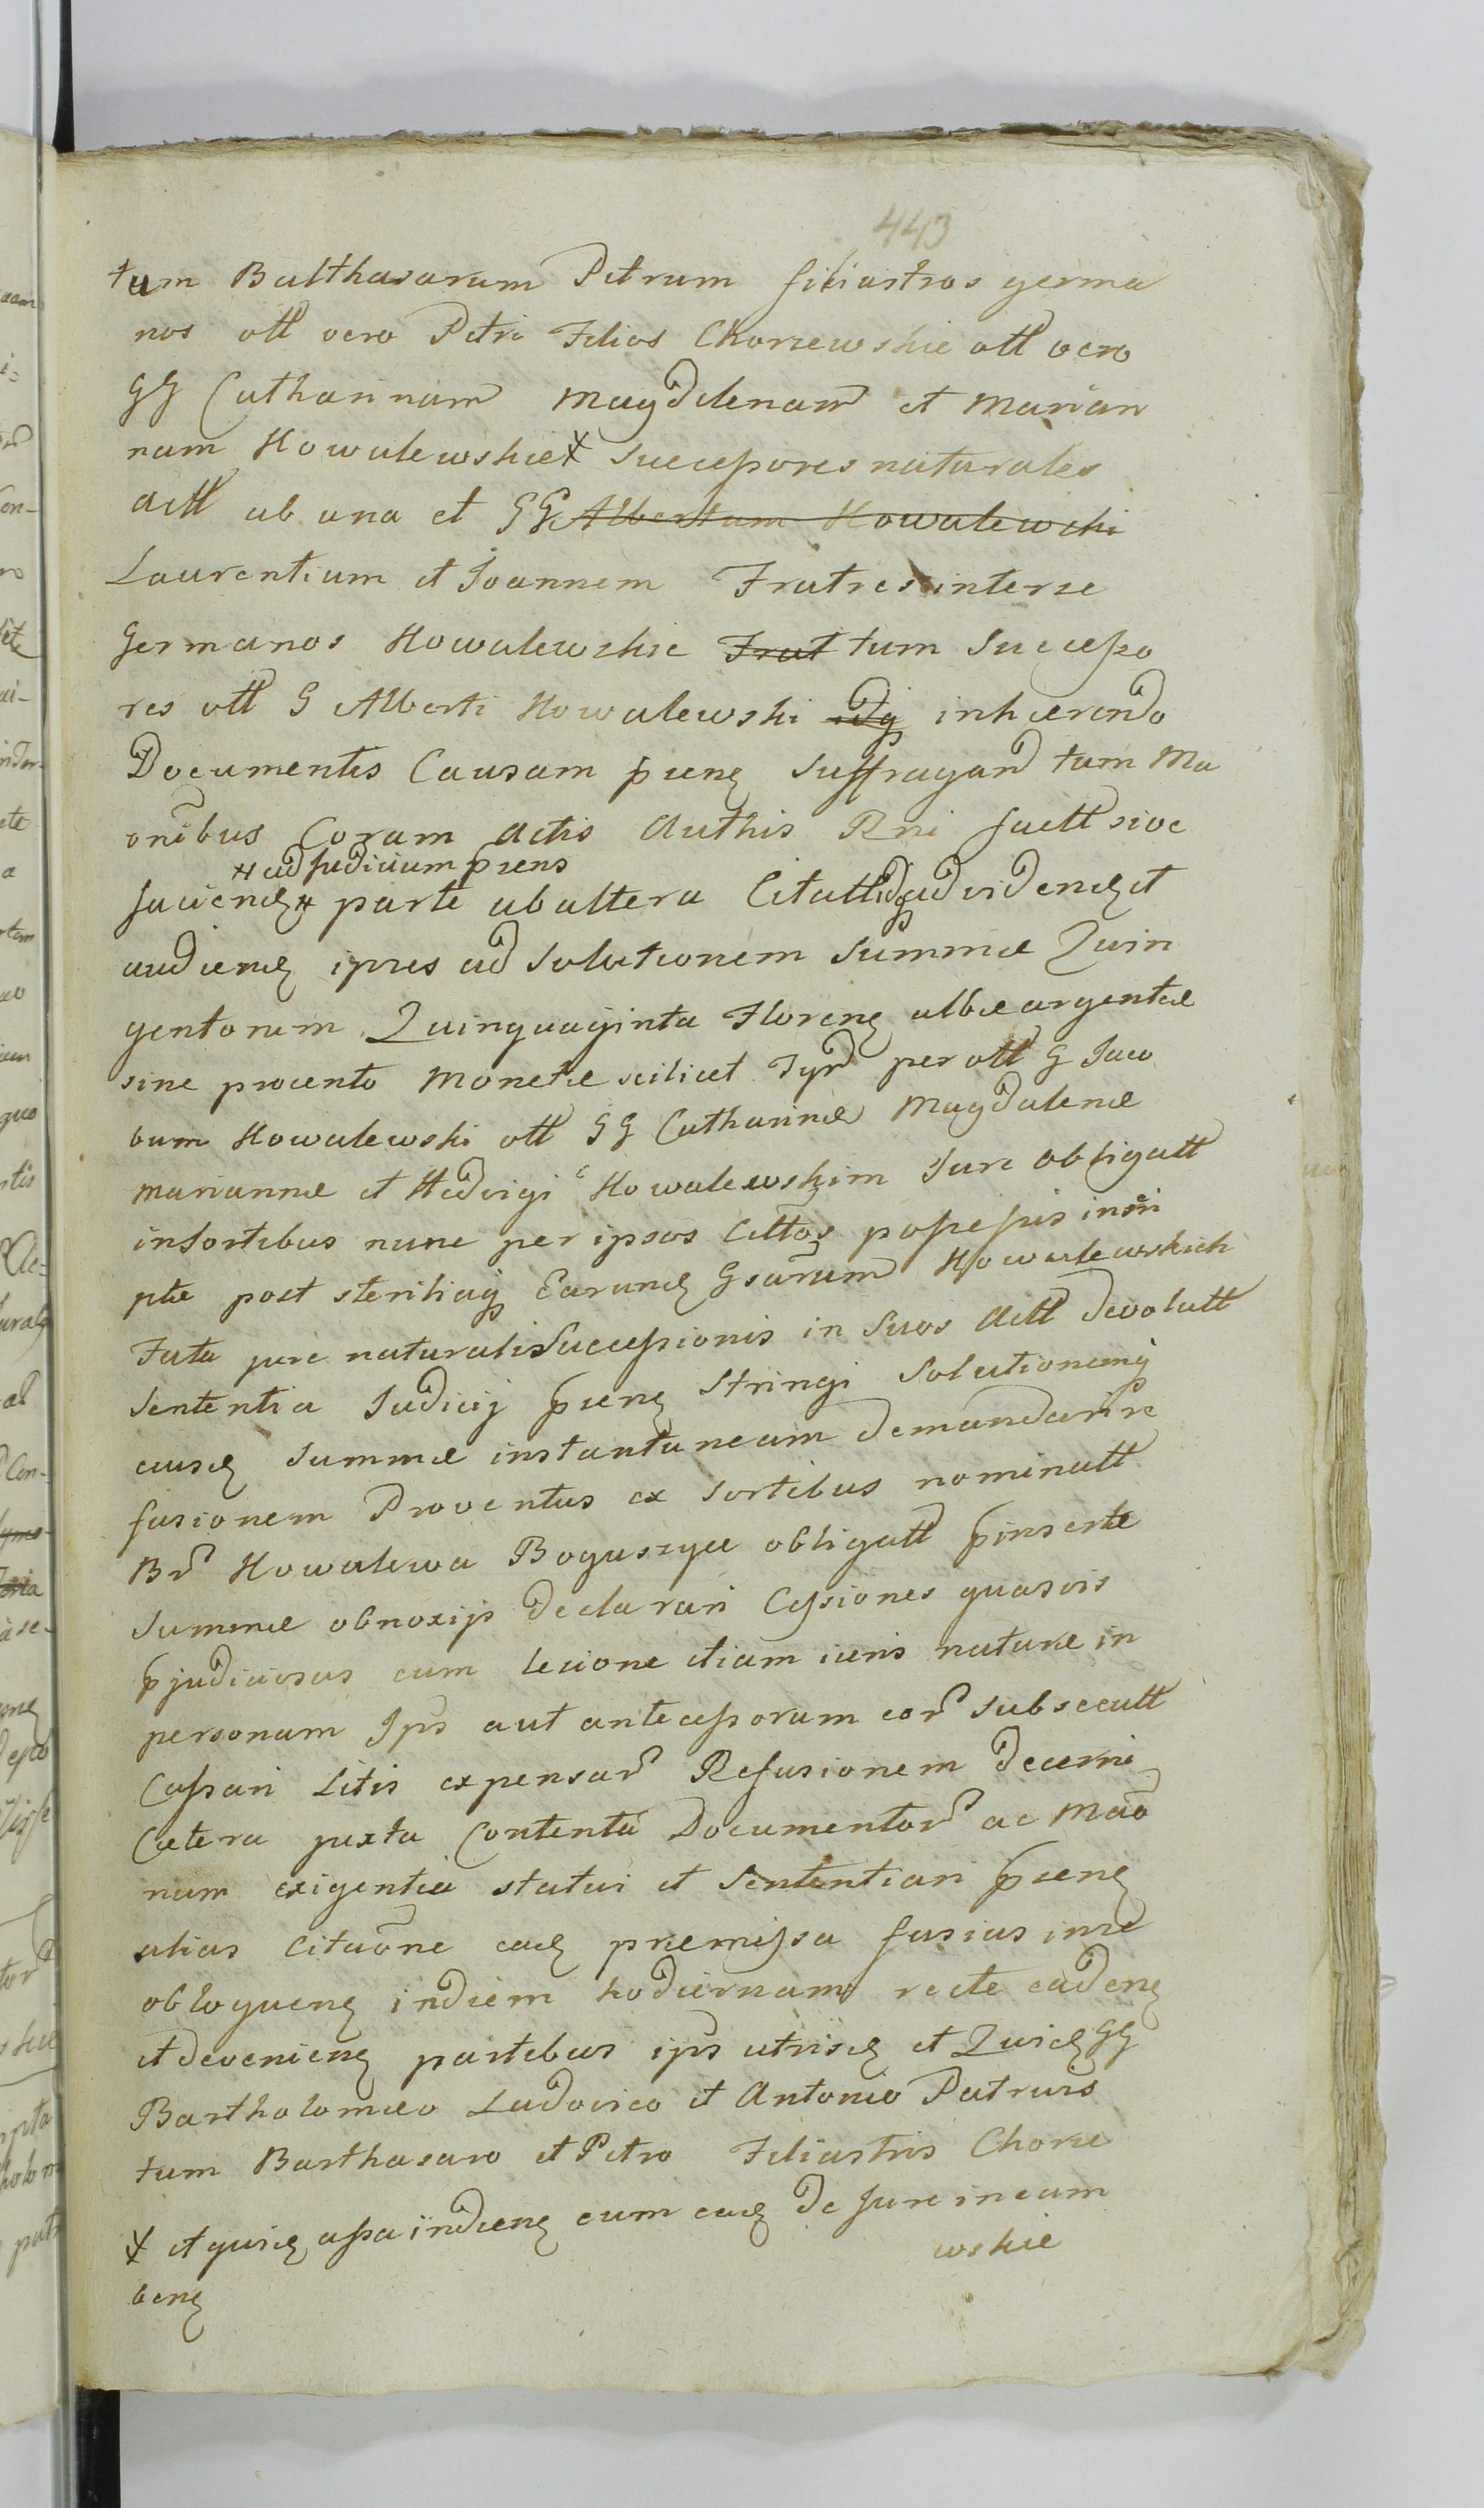 443
tum Balthasarum Petrum filiastros germa
nos oll vero Petri Filios Chorzewskie oll vero
GG Catharinam Magdalenam et Marian
nam Kowalewskie ⨯ Successores naturales
actt ab una et GG Albertum Kowalewski
Laurentium et Joannem Fratres interse
Germanos Kowalewskie Frat tum Successo
res oll G Alberti Kowalewski idq inhærendo
Documentis Causam præns suffragand tum Ma
onibus Coram Actis Authis Rni factt sive
⨯ ad Judicium præns
faciend ⨯ parte ab altera Citatt idq ad vidend et
audiend ipsos ad Solutionem Summæ Quin
gentorum Quinquaginta Floreng albæ argentæ
sine procento Monetæ scilicet Tynf per oll G Jaco
bum Kowalewski oll GG Catharinæ Magdalenæ
Mariannæ et Hedvigi Kowalewskim Jure obligatt
in Sortibus nunc per ipsos Cittos possessis inscri
ptæ post steriliaq Earund Gsarum Kowalewskich
Fata jure naturalis Successionis in Suos Actt devolutt
Sententia Judicij præns Stringi Solutionemq
eiusd Summæ instantaneam demandari re
fusionem Proventus ex Sortibus nominatt
Br Kowalewa Boguszyce obligatt pinsertæ
Summæ obnoxijs declarari Cessiones quasvis
pjudiciosas cum lesione etiam iuris naturæ in
personam Ips aut antecessorum eor subsecutt
Cassari Litis expensar Refusionem decerni
Cætera juxta Contenta Documentor ac Mao
num exigentia statui et Sententiari præns
alias Citaone ead præmissa fusius in se
obloquens in diem hodiernam recte cadens
et deveniens partibus ips utrisq et Quid GG
Bartholomæo Ludovico et Antonio Patruis
tum Barthasaro et Petro Filiastris Chorze
wskie
⨯ et quid assa indiens cum ead de Jure incum
bens